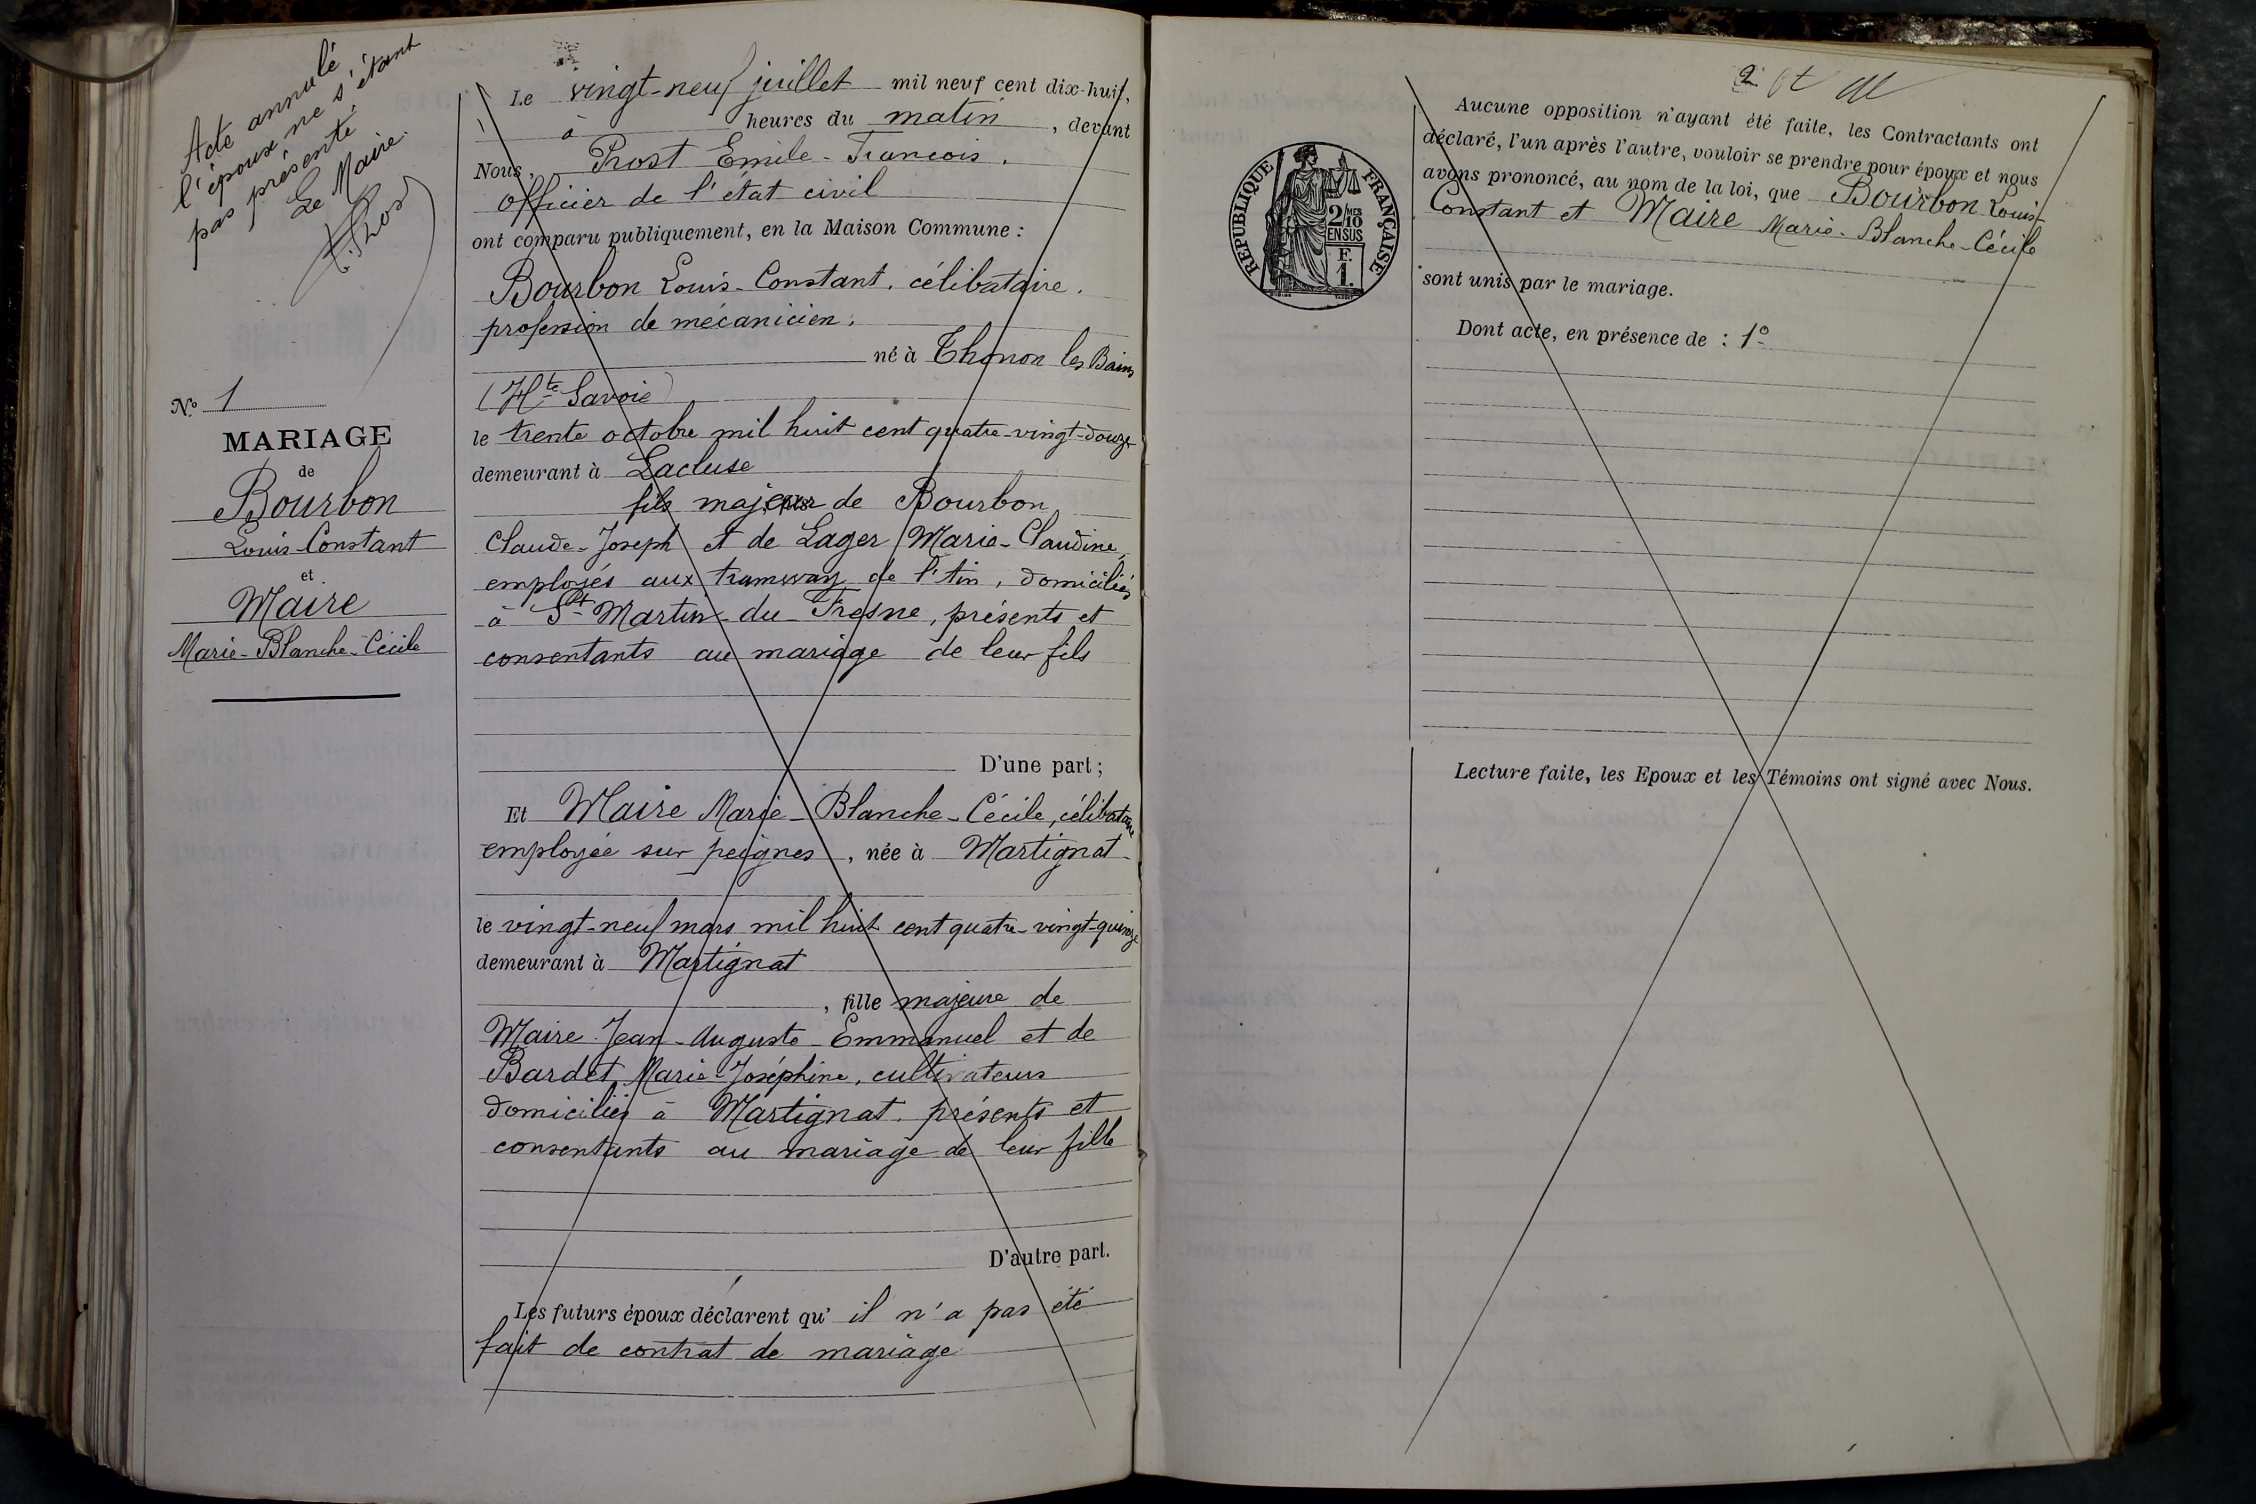 Acte annulé,
l'époux ne s'étant
pas présenté
Le Maire.
E. Prost
N.º 1
MARIAGE
de
Bourbon
Louis-Constant
et
Maire
Marie-Blanche-Cécile
Le vingt-neuf juillet mil neuf cent dix-huit,
à heures du matin, devant
Nous, Prost Emile-Francois.
officier de l'état civil
ont comparu publiquement, en la Maison Commune :
Bourbon Louis-Constant. célibataire.
profession de mécanicien.
né à Thonon les Bains
(Hte Savoie)
le trente octobre mil huit cent quatre-vingt-douze
demeurant à Lacluse
fils majeur de Bourbon
Claude-Joseph et de Lager Marie-Claudine,
employés aux tramway de l'Ain, domiciliés
à St Martin-du-Fresne, présents et
consentants au mariage de leur fils
D'une part ;
Et Maire Marie-Blanche-Cécile, célibataire
employée sur peignes, née à Martignat
le vingt-neuf mars mil huit cent quatre-vingt-quinze
demeurant à Martignat
, fille majeure de
Maire Jean-Auguste-Emmanuel et de
Bardet Marie-Joséphine, cultivateurs
domiciliés à Martignat. présents et
consentants au mariage de leur fille
D'autre part.
Les futurs époux déclarent qu' il n'a pas été
fait de contrat de mariage
RÉPUBLIQUE FRANÇAISE
2/10 MES
EN SUS
F.
1.
2
Aucune opposition n'ayant été faite, les Contractants ont
déclaré, l'un après l'autre, vouloir se prendre pour époux et nous
avons prononcé, au nom de la loi, que Bourbon Louis-
Constant et Maire Marie-Blanche-Cécile
sont unis par le mariage.
Dont acte, en présence de : 1º
Lecture faite, les Epoux et les Témoins ont signé avec Nous.